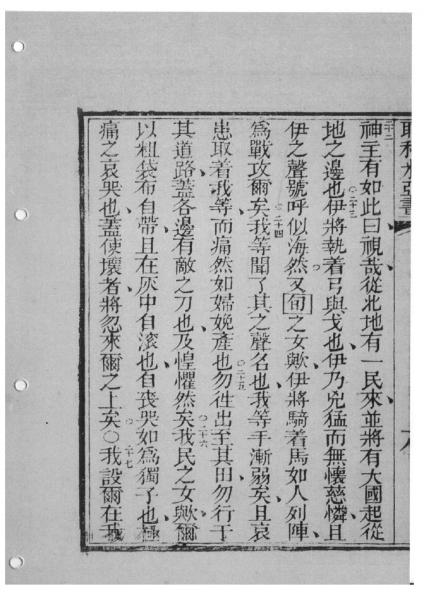 耶利米亞書
二十二神主有如此曰視哉從北地有一民來並將有大國起從
地之邊也○二十三伊將執着弓與戈也伊乃兇猛而無懷慈憐且
伊之聲號呼似海然又旬之女歟伊將騎着馬如人列陣
爲戰攻爾矣○二十四我等聞了其之聲名也我等手漸弱矣且哀
患取着我等而痛然如婦娩產也○二十五勿徃出至其田勿行于
其道路蓋各邊有敵之刀也及惶懼然矣○二十六我民之女歟爾
以粗袋布自帶且在灰中自滚也自喪哭如爲獨子也極
痛之哀哭也蓋使壞者將忽來爾之上矣○二十七我設爾在我